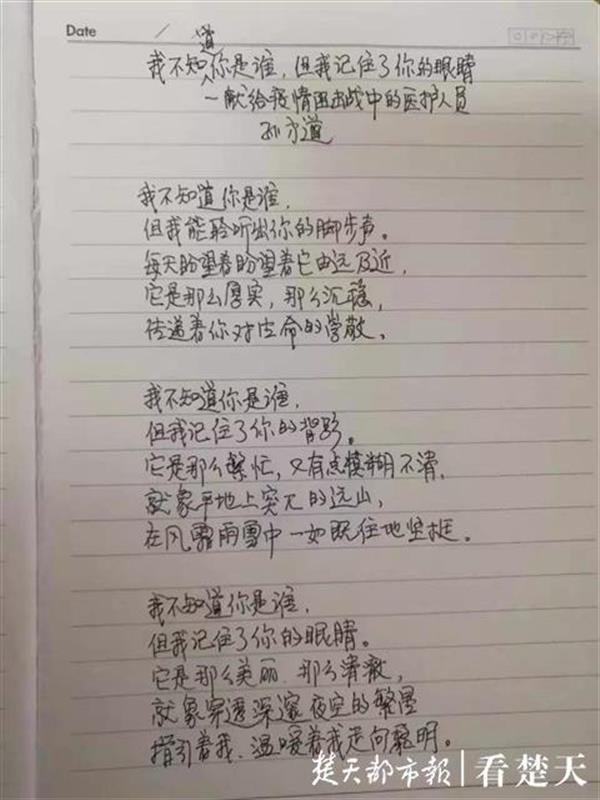 Date /
我不知道你是谁，但我记住了你的眼睛
—献给疫情阻击战中的医护人员
孙方道
我不知道你是谁，
但我能聆听出你的脚步声。
每天盼望着盼望着它由远及近，
它是那么厚实，那么沉稳，
传递着你对生命的崇敬。
我不知道你是谁，
但我记住了你的背影。
它是那么繁忙，又有点模糊不清，
就象平地上突兀的远山，
在风霜雨雪中一如既往地坚挺。
我不知道你是谁，
但我记住了你的眼睛。
它是那么美丽、那么清澈，
就象穿透深邃夜空的繁星
指引着我、温暖着我走向黎明。
楚天都市报|看楚天